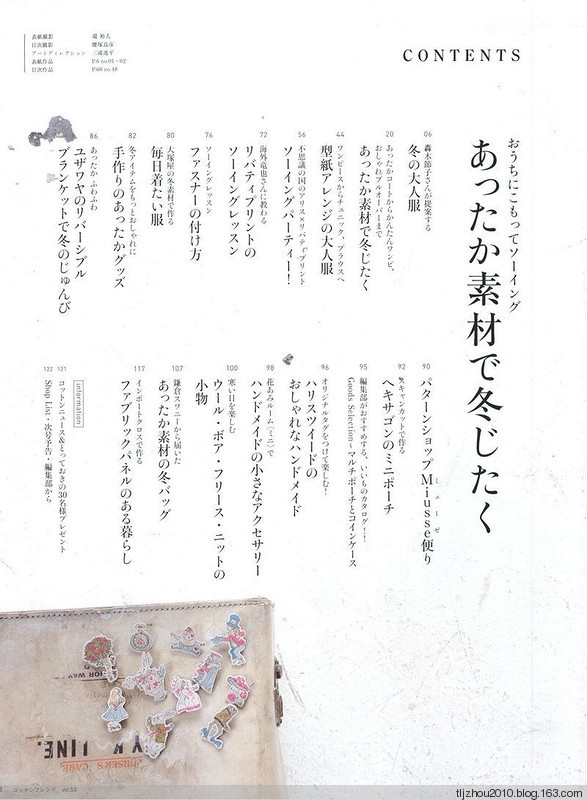 CONTENTS
表紙撮影
目次撮影
アートディレクション
表紙作品 P.6 no.01・02
目次作品 P.60 no.48
おうちにこもってソーイング
あったか素材で冬じたく
06
轟木節子さんが提案する
冬の大人服
20
あったかコートからかんたんワンピ、
おしゃれプルオーバーまで
あったか素材で冬じたく
44
ワンピースからチュニック、ブラウスへ
型紙アレンジの大人服
56
不思議の国のアリス×リバティプリント
ソーイングパーティー!
72
海外竜也さんに教わる
リバティプリントの
ソーイングレッスン
76
ソーイングレッスン
ファスナーの付け方
80
大塚屋の冬素材で作る
毎日着たい服
82
冬アイテムをもっとおしゃれに
手作りのあったかグッズ
86
あったか ふわふわ
ユザワヤのリバーシブル
ブランケットで冬のじゅんび
90
パターンショップMiusse便り
ミューゼ
92
スキャンカットで作る
ヘキサゴンのミニポーチ
95
編集部がおすすめする、いいものカタログ!!
Goods Selection～マルチポーチとコインケース
96
オリジナルタグをつけて楽しむ!
ハリスツイードの
おしゃれなハンドメイド
98
花あみルーム(ミニ)で
ハンドメイドの小さなアクセサリー
100
寒い日を楽しむ
ウール・ボア・フリース・ニットの
小物
107
鎌倉スワニーから届いた
あったか素材の冬バッグ
117
インポートクロスで作る
ファブリックパネルのある暮らし
information
121
コットンニュース&とっておきの30名様プレゼント
122
Shop List・次号予告・編集部から
コットンフレンド vol.53
tljzhou2010.blog.163.com